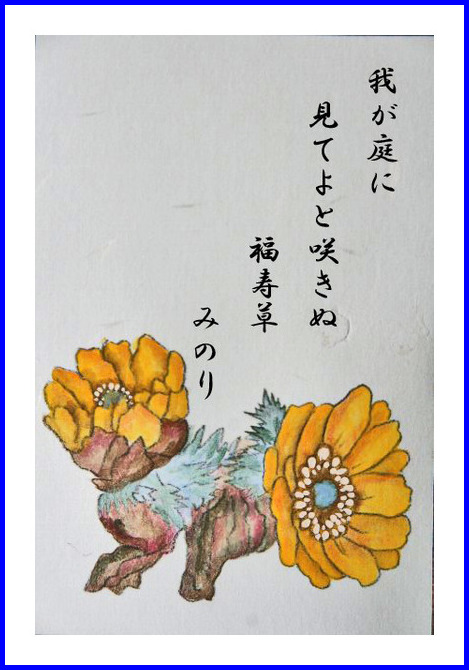 我が庭に
見てよと咲きぬ
福寿草
みのり